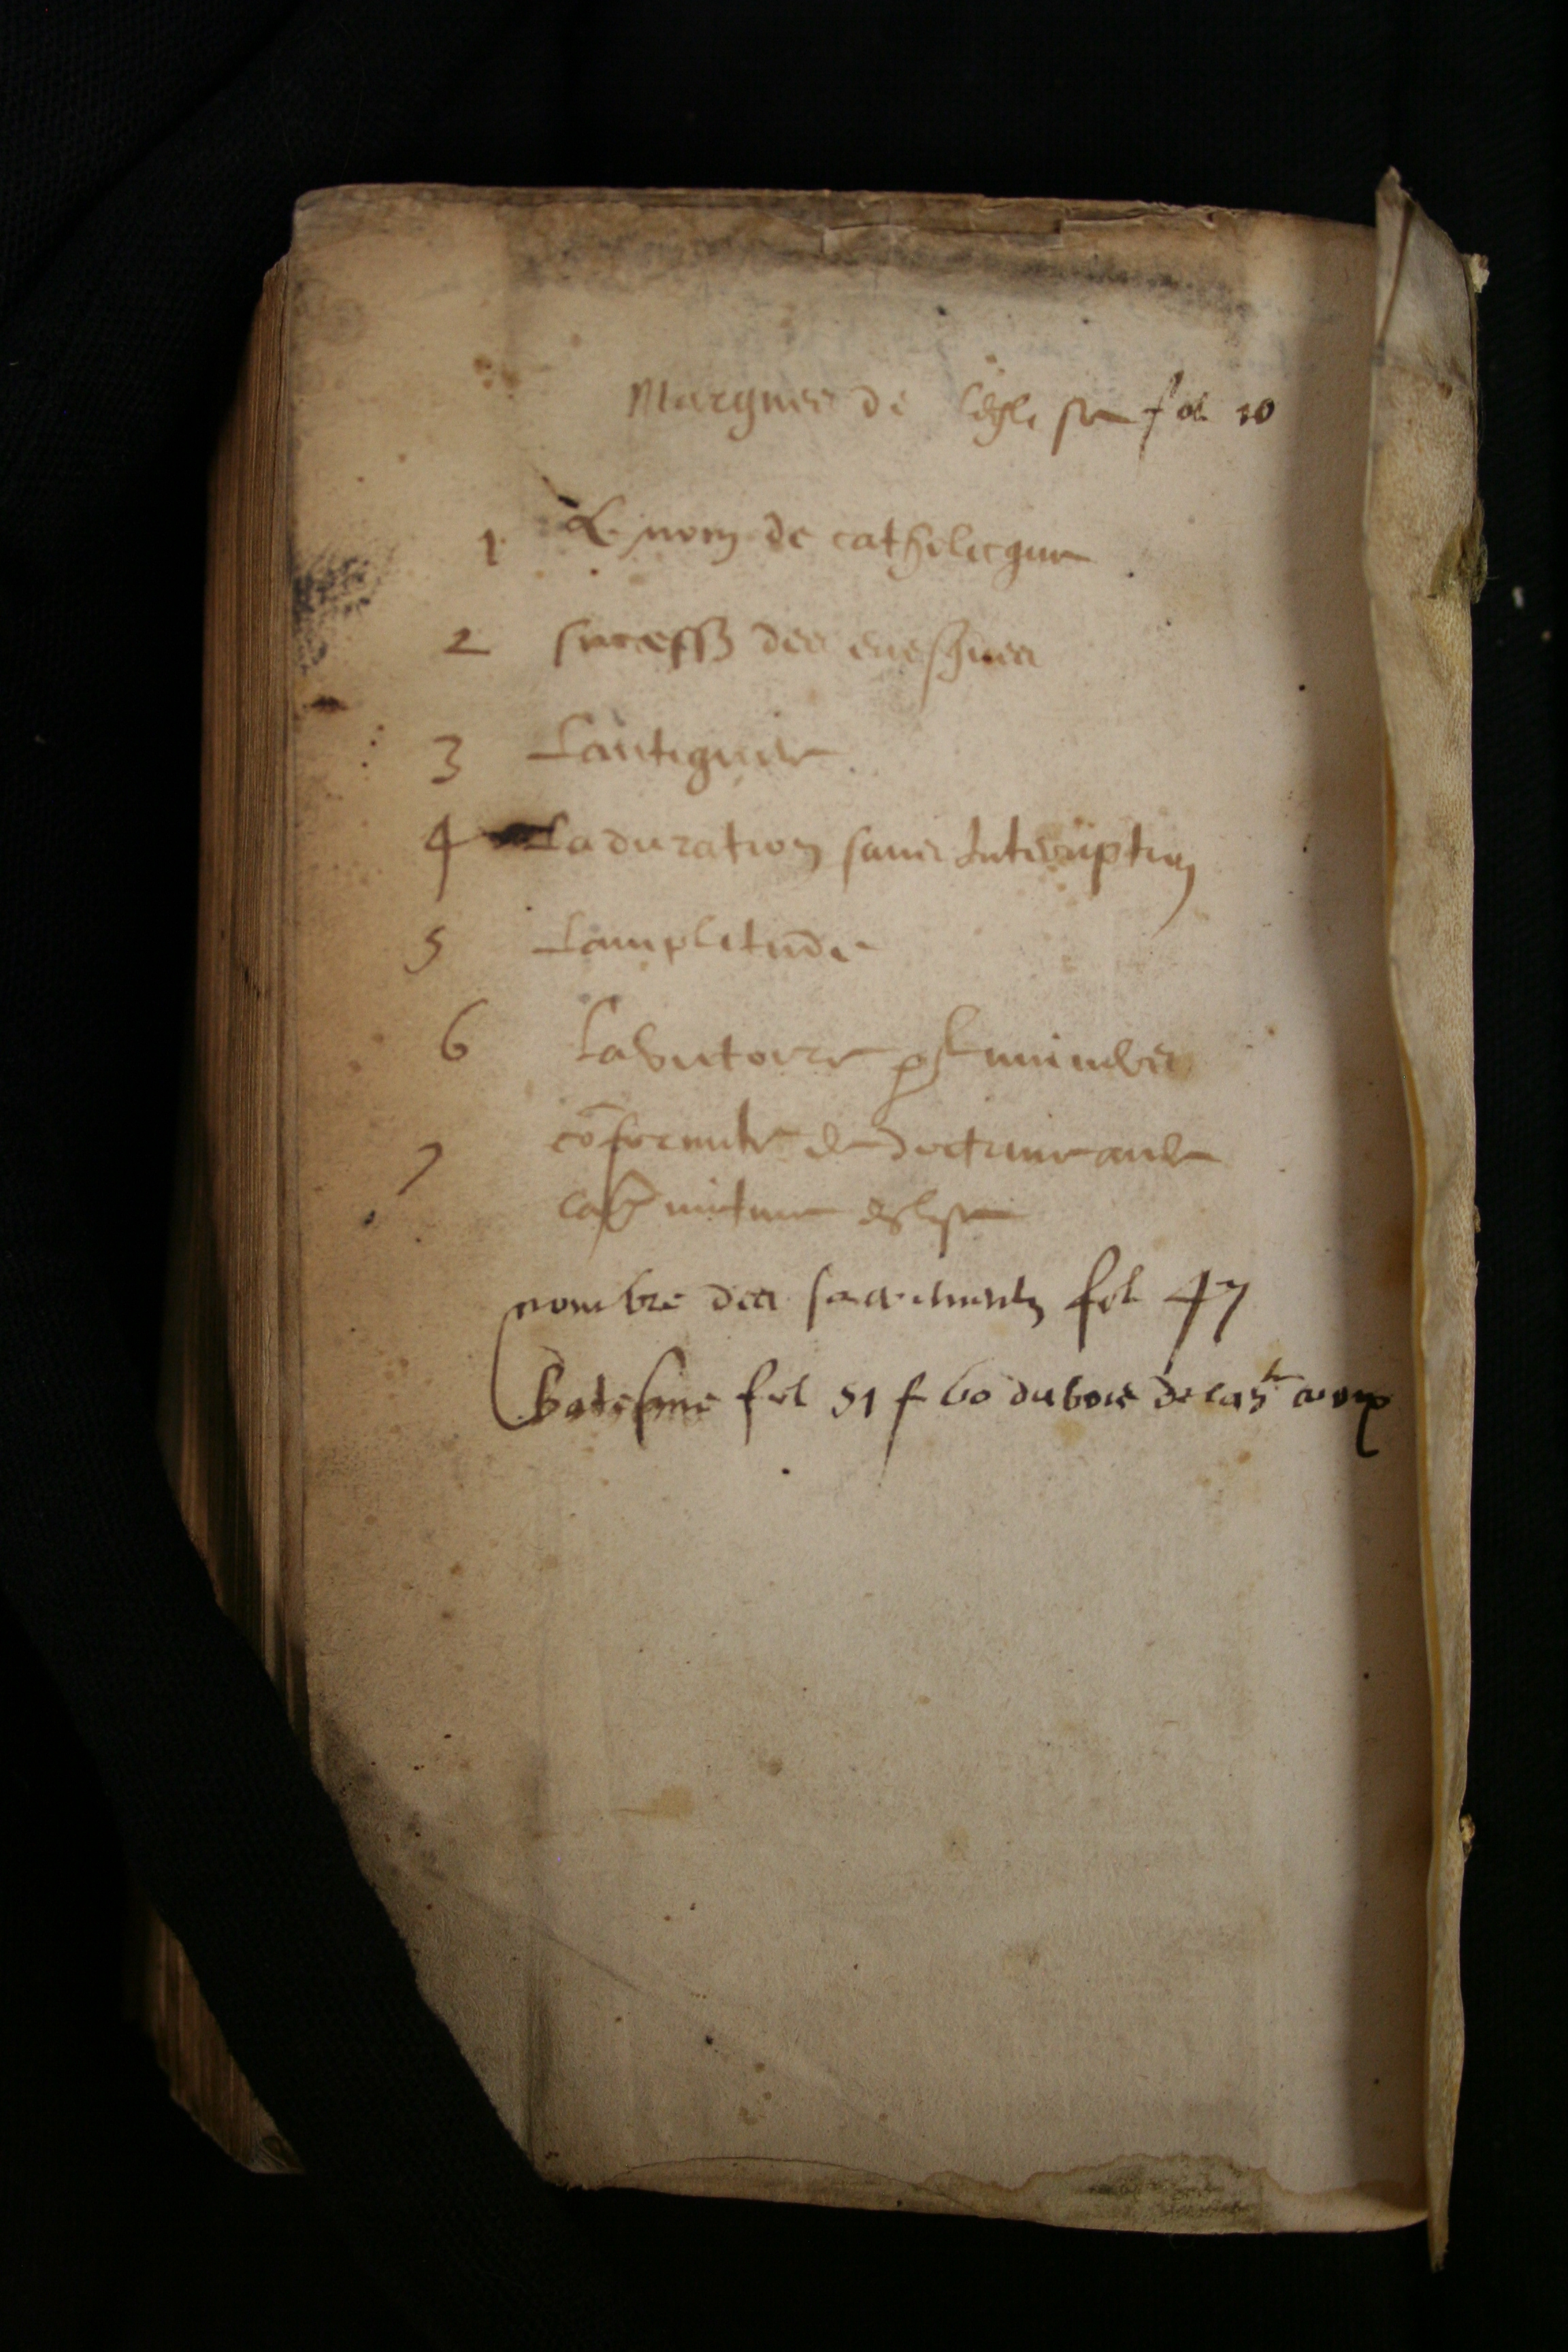 Marques de leglise fol 10
1 Le nom de catholicque
2 success des evesques
3 Lantiquite
4 La duration sans Interuption
5 Lamplitude
6 La victoire
7 cōformite de doctrine avec
eglise
nombre des sacrements fol 47
Batesme fol 51 f 60